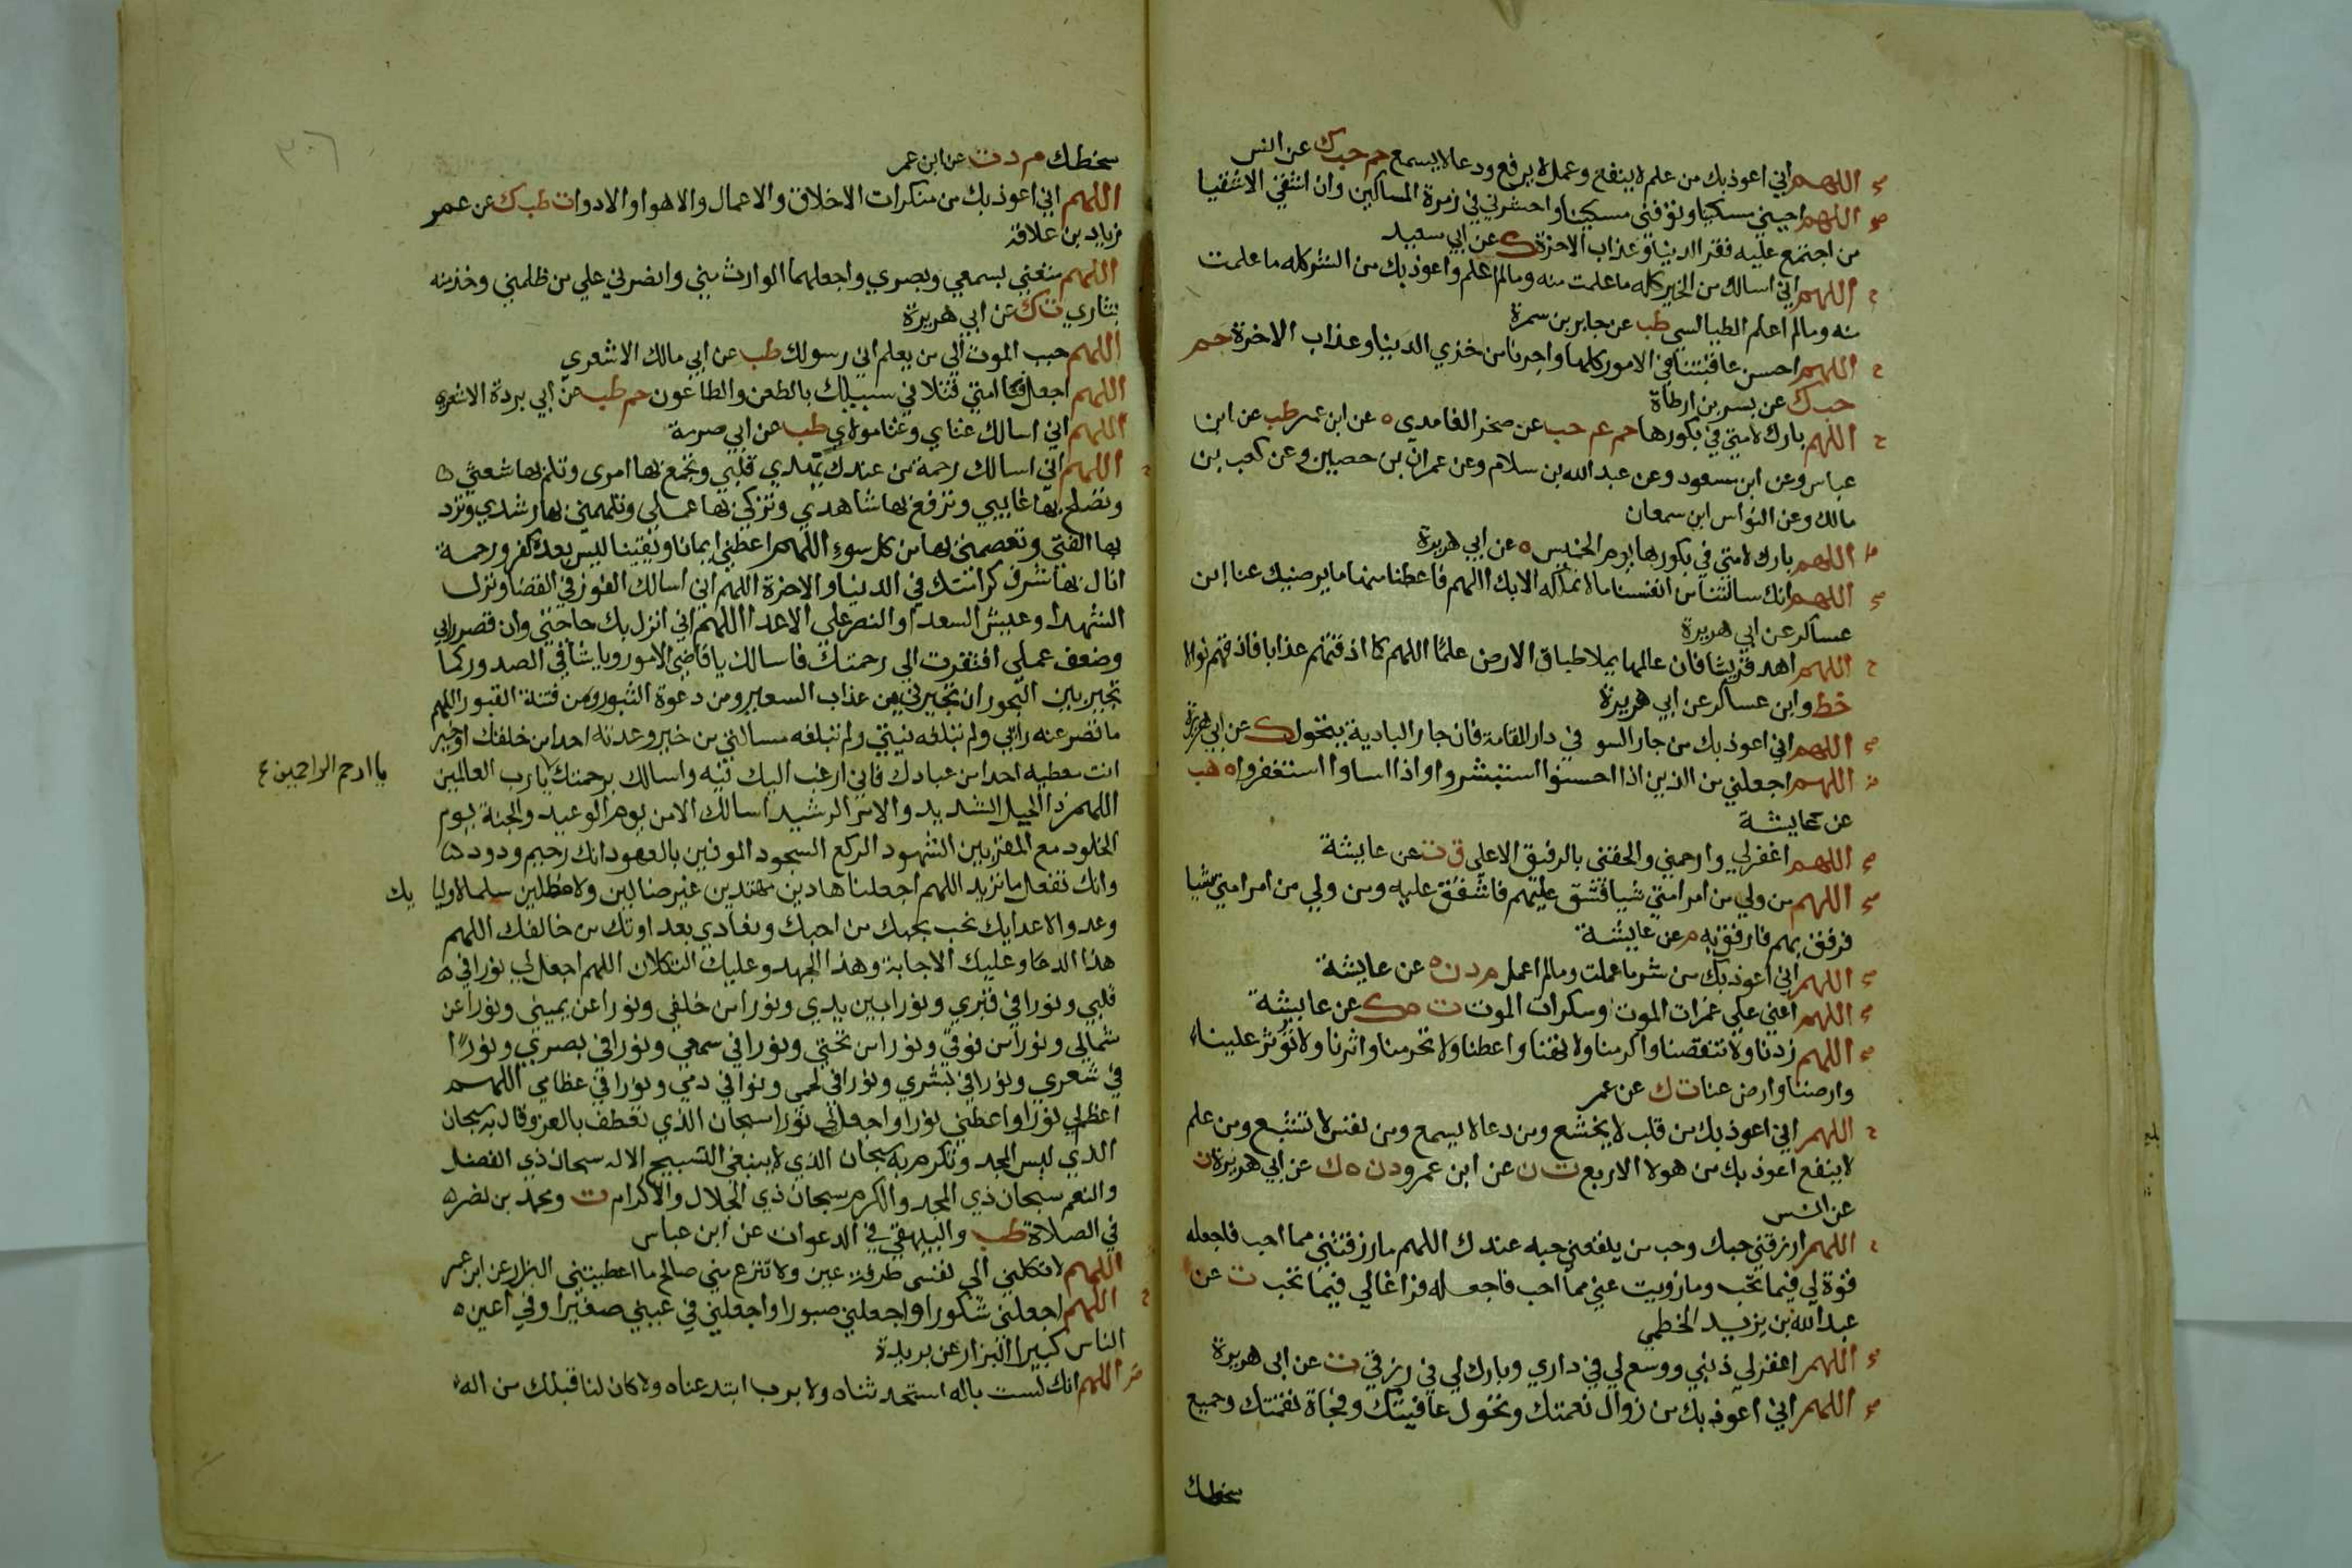 اللهم اني اعوذ بك من علم لا ينفع وعمل لا يرفع ودعا لا يسمع حم حب ك عن انس
اللهم احيني مسكينا وتوفني مسكينا واحشرني في زمرة المساكين وان اشقي الاشقيا
من اجتمع عليه فقر الدنيا وعذاب الاخرة ك عن ابي سعيد
اللهم اني اسالك من الخير كله ما علمت منه ومالم اعلم واعوذ بك من الشر كله ما علمت
منه ومالم اعلم الطيالسي طب عن جابر بن سمرة
اللهم احسن عاقبتنا في الامور كلها واجرنا من خزي الدنيا وعذاب الاخرة حم
حب ك عن بسر بن ارطاة
اللهم بارك لامتي في بكورها حم عم حب عن صخر الغامدي ه عن ابن عمر طب عن ابن
عباس وعن ابن مسعود وعن عبد الله بن سلام وعن عمران بن حصين وعن كعب بن
مالك وعن النواس ابن سمعان
اللهم بارك لامتي في بكورها يوم الخميس ه عن ابي هريرة
اللهم انك سالتنا من انفسنا مالا نملكه الا بك اللهم فاعطنا منها ما يرضيك عنا ابن
عساكر عن ابي هريرة
اللهم اهد قريشا فان عالمها يملا طباق الارض علما اللهم كما اذقتهم عذابا فاذقهم نوالا
خط وابن عساكر عن ابي هريرة
اللهم اني اعوذ بك من جار السو في دار المقامة فان جار البادية يتحول ك عن ابي هريرة
اللهم اجعلني من الذين اذا احسنوا استبشروا واذا اساوا استغفروا ه هب
عن عايشة
اللهم اغفر لي وارحمني والحقني بالرفيق الاعلي ق ت عن عايشة
اللهم من ولي من امر امتي شيا فشق عليهم فاشقق عليه ومن ولي من امر امتي شيا
فرفق بهم فارفق به م عن عايشة
اللهم اني اعوذ بك من شر ما عملت ومالم اعمل م د ن ه عن عايشة
اللهم اعني علي غمرات الموت وسكرات الموت ت ه ك عن عايشة
اللهم زدنا ولا تنقصنا واكرمنا ولا تهنا واعطنا ولا تحرمنا واثرنا ولا توثر علينا
وارضنا وارض عنا ت ك عن عمر
اللهم اني اعوذ بك من قلب لا يخشع ومن دعا لا يسمع ومن نفس لا تشبع ومن علم
لا ينفع اعوذ بك من هولا الاربع ت ن عن ابن عمرو د ن ه ك عن ابي هريرة ن
عن انس
اللهم ارزقني حبك وحب من ينفعني حبه عندك اللهم مارزقتني مما احب فاجعله
قوة لي فيما تحب ومازويت عني مما احب فاجعله فراغا لي فيما تحب ت عن
عبد الله بن يزيد الخطمي
اللهم اغفر لي ذنبي ووسع لي في داري وبارك لي في رزقي ت عن ابي هريرة
اللهم اني اعوذ بك من زوال نعمتك وتحول عافيتك وفجاة نقمتك وجميع
سخطك
٣٠٦
سخطك م د ت عن ابن عمر
اللهم اني اعوذ بك من منكرات الاخلاق والاعمال والاهوا والادوا ت طب ك عن عمر
زياد بن علاقة
اللهم متعني بسمعي وبصري واجعلهما الوارث مني وانصرني علي من ظلمني وخذ منه
بثاري ت ك عن ابي هريرة
اللهم حبب الموت الي من يعلم اني رسولك طب عن ابي مالك الاشعري
اللهم اجعل فنا امتي قتلا في سبيلك بالطعن والطاعون حم طب عن ابي بردة الاشعري
اللهم اني اسالك غناي وغنا مولاي طب عن ابي صرمة
اللهم اني اسالك رحمة من عندك تهدي قلبي وتجمع بها امري وتلم بها شعثي ه
وتصلح بها غايبي وترفع بها شاهدي وتزكي بها عملي وتلهمني بها رشدي وترد
بها الفتي وتعصمني بها من كل سوء اللهم اعطني ايمانا ويقينا ليس بعده كفر ورحمة
انال بها شرف كرامتك في الدنيا والاخرة اللهم اني اسالك الفوز في القضا ونزل
الشهدا وعيش السعدا والنصر علي الاعدا اللهم اني انزل بك حاجتي وان قصر رايي
وضعف عملي افتقرت الي رحمتك فاسالك يا قاضي الامور ويا شافي الصدور كما
تجير بين البحور ان تجيرني من عذاب السعير ومن دعوة الثبور ومن فتنة القبور اللهم
ما قصر عنه رايي ولم تبلغه نيتي ولم تبلغه مسالتي من خير وعدته احدا من خلقك او خير
انت معطيه احدا من عبادك فاني ارغب اليك فيه واسالك برحمتك يارب العالمين
يا ارحم الراحمين ع
اللهم ذا الحبل الشديد والامر الرشيد اسالك الامن يوم الوعيد والجنة يوم
الخلود مع المقربين الشهود الركع السجود الموفين بالعهود انك رحيم ودود ه
وانك تفعل ما تريد اللهم اجعلنا هادين مهتدين غير ضالين ولا مضلين سلما لاوليا يك
وعدوا لاعدايك نحب بحبك من احبك ونعادي بعداوتك من خالفك اللهم
هذا الدعا وعليك الاجابة وهذا الجهد وعليك التكلان اللهم اجعل لي نورا في ه
قلبي ونورا في قبري ونورا بين يدي ونورا من خلفي ونورا عن يميني ونورا عن
شمالي ونورا من فوقي ونورا من تحتي ونورا في سمعي ونورا في بصري ونورا
في شعري ونورا في بشري ونورا في لحمي ونورا في دمي ونورا في عظامي اللهم
اعظم لي نورا واعطني نورا واجعل لي نورا سبحان الذي تعطف بالعز وقال به سبحان
الذي لبس المجد وتكرم به سبحان الذي لا ينبغي التسبيح الا له سبحان ذي الفضل
والنعم سبحان ذي المجد والكرم سبحان ذي الجلال والاكرام ت ومحمد بن نصر ه
في الصلاة طب والبيهقي في الدعوات عن ابن عباس
اللهم لا تكلني الي نفسي طرفة عين ولا تنزع مني صالح ما اعطيتني البزار عن ابن عمر
اللهم اجعلني شكورا واجعلني صبورا واجعلني في عيني صغيرا وفي اعين ه
الناس كبيرا البزار عن بريدة
اللهم انك لست باله استحدثناه ولا برب ابتدعناه ولا كان لنا قبلك من اله